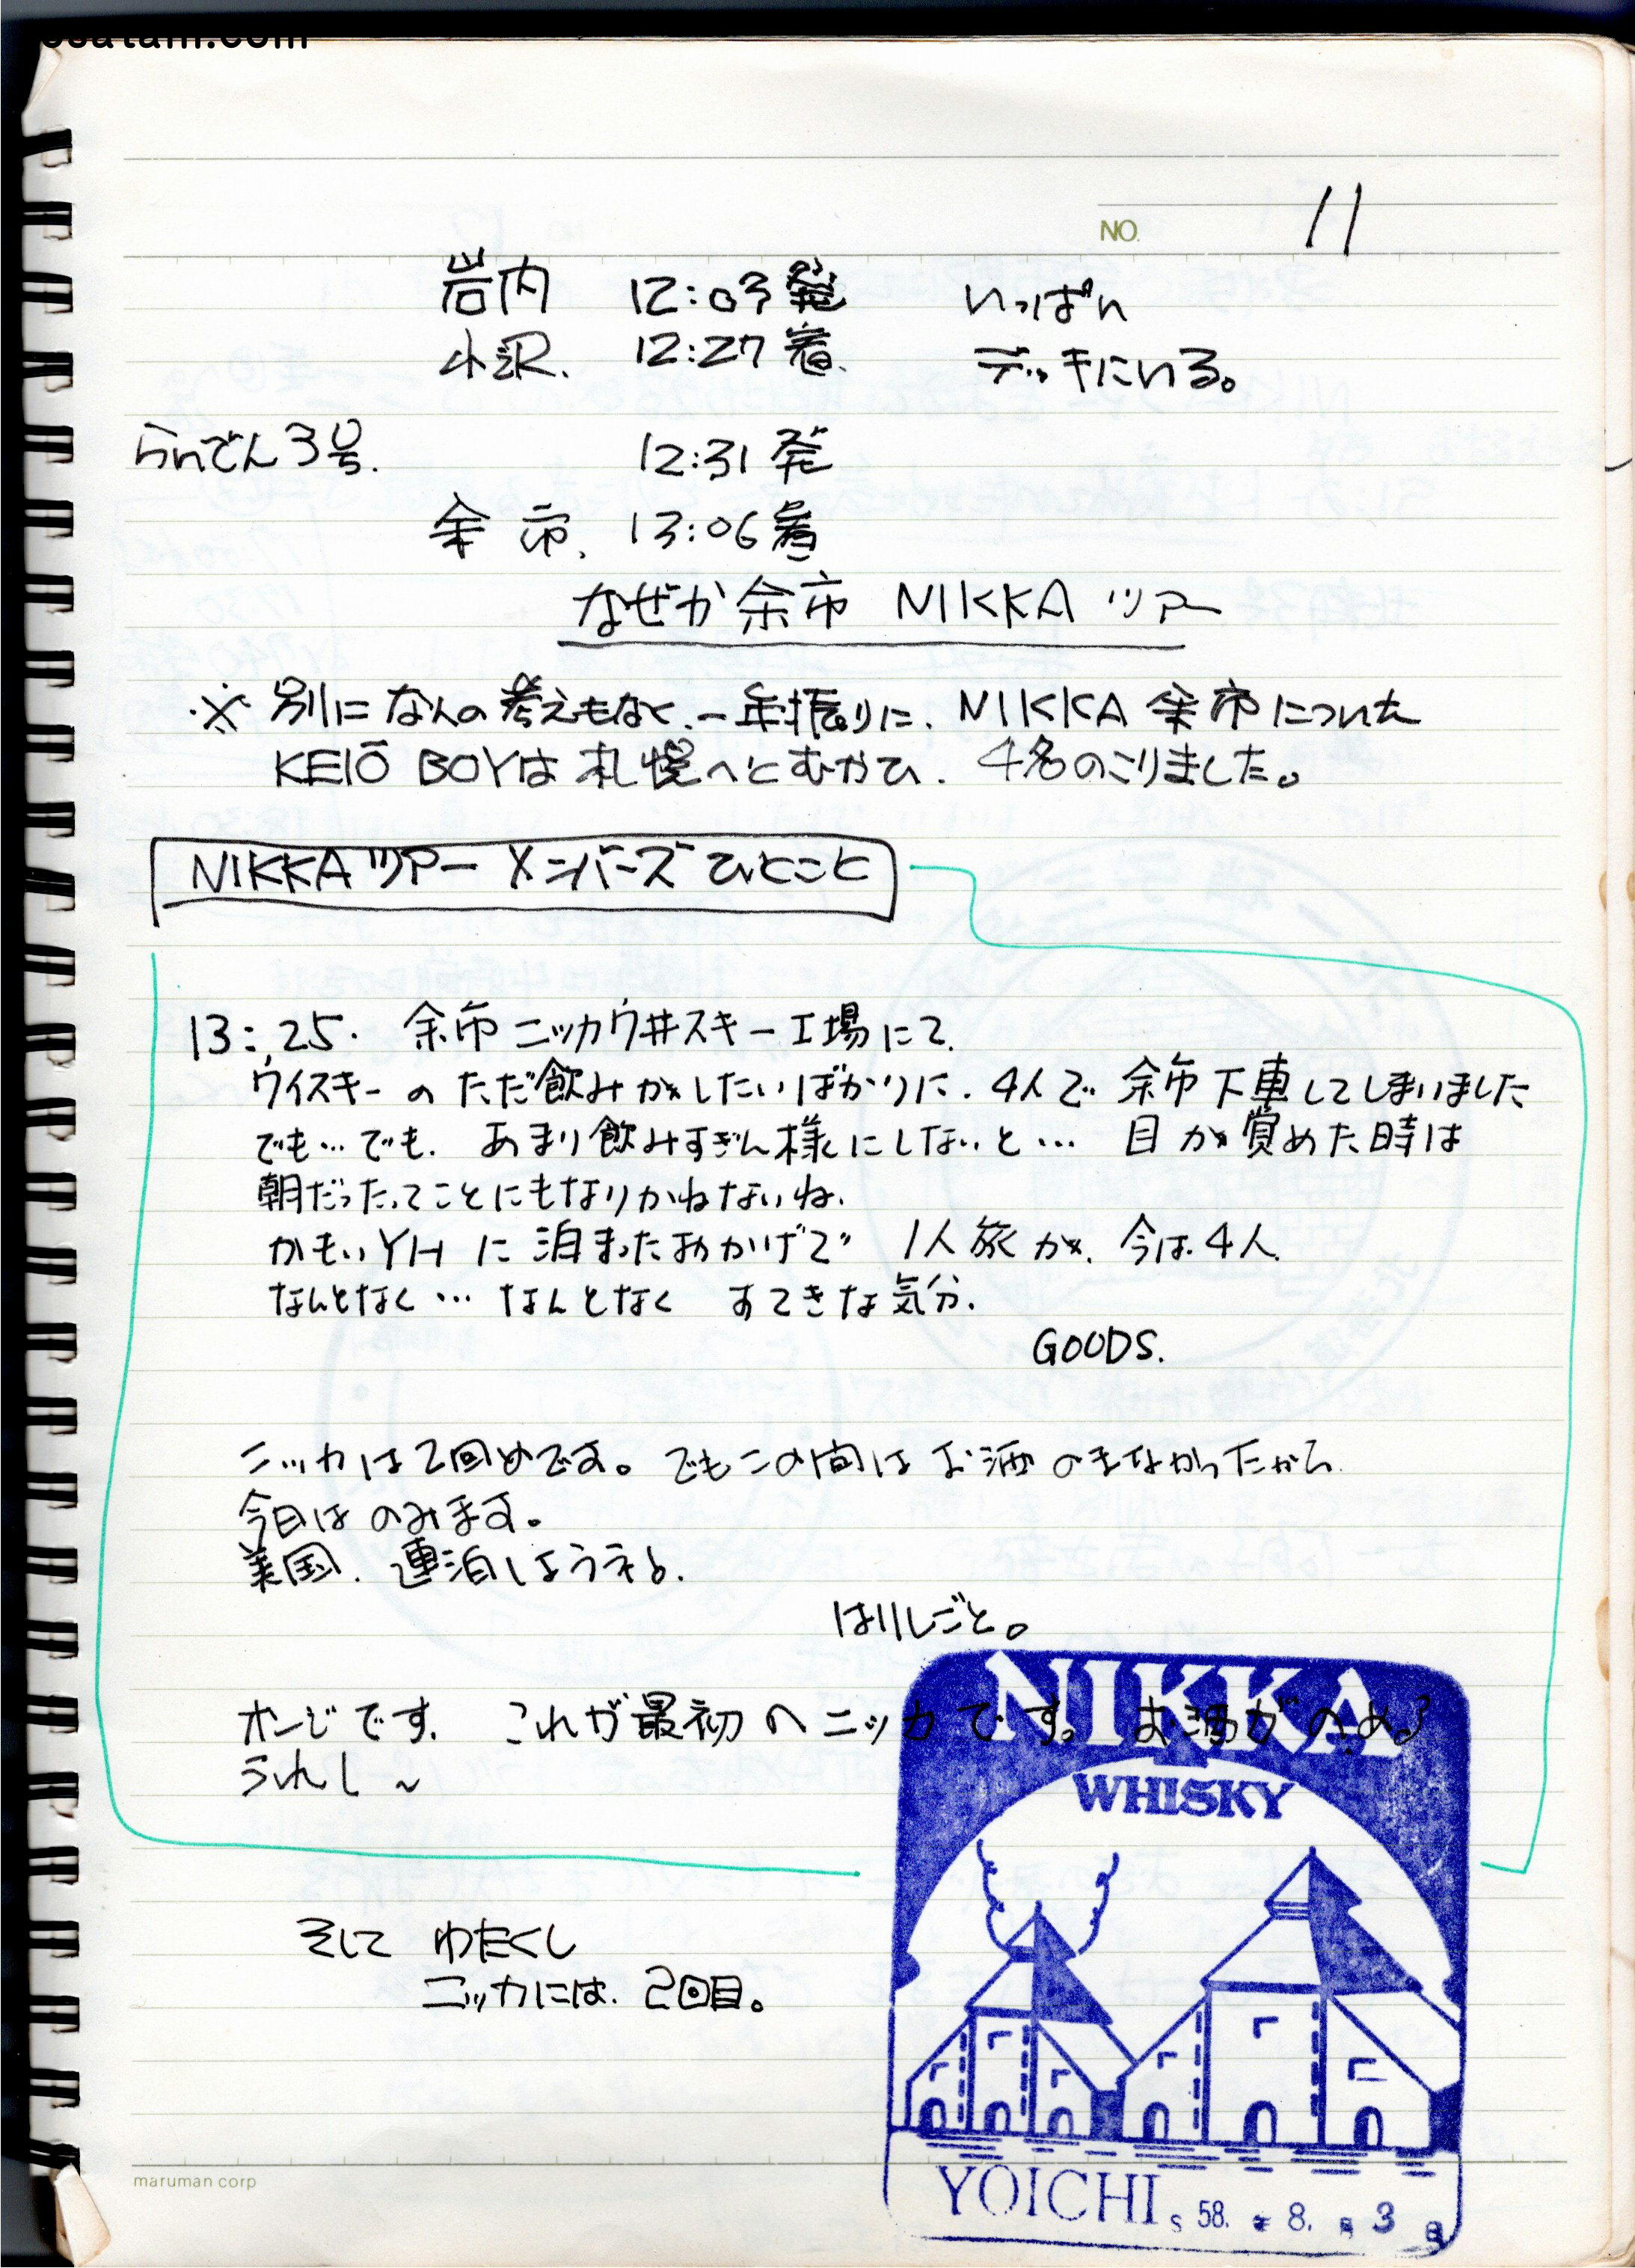 NO. 11
岩内 12:03発 いっぱい
小沢. 12:27着. デッキにいる。
らいでん3号. 12:31発
余市. 13:06着
なぜか余市 NIKKA ツアー
※ 別になんの考えもなく、一年振りに、NIKKA 余市についた
KEIŌ BOYは札幌へとむかひ、4名のこりました。
NIKKAツアー メンバーズひとこと
13:25. 余市ニッカウヰスキー工場にて.
ウイスキーのただ飲みがしたいばかりに、4人で余市下車してしまいました
でも…でも、あまり飲みすぎん様にしないと… 目が覚めた時は
朝だったってことにもなりかねないね.
かもいYHに泊まったおかげで 1人旅が、今は4人.
なんとなく…なんとなく すてきな気分.
GOODS.
ニッカは2回めです。でもこの間はお酒のまなかったから
今日はのみます。
美国、連泊しようネ.
はりしごと。
オージです. これが最初のニッカです。お酒がのめる
うれし〜
そして わたくし
ニッカには、2回目。
NIKKA
WHISKY
YOICHI S 58. 8. 3
maruman corp